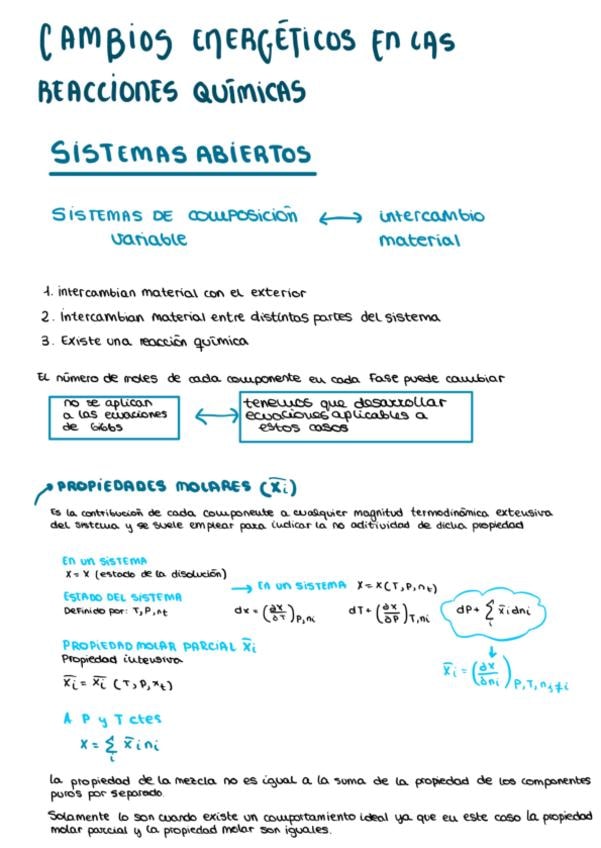 CAMBIOS ENERGÉTICOS EN LAS
REACCIONES QUÍMICAS
SISTEMAS ABIERTOS
SISTEMAS DE composición ⟷ intercambio
variable material
1. intercambian material con el exterior
2. intercambian material entre distintas partes del sistema
3. Existe una reacción química
El número de moles de cada componente en cada fase puede cambiar
no se aplican
a las ecuaciones
de Gibbs
⟷
tenemos que desarrollar
ecuaciones aplicables a
estos casos
PROPIEDADES MOLARES (X̄i)
Es la contribución de cada componente a cualquier magnitud termodinámica extensiva
del sistema y se suele emplear para indicar la no aditividad de dicha propiedad
En un sistema
X = X (estado de la disolución)
ESTADO DEL SISTEMA
Definido por: T, P, nt
→ En un sistema X = X(T, P, nt)
dx = (∂X/∂T)P,ni dT + (∂X/∂P)T,ni dP + Σi X̄i dni
X̄i = (∂X/∂ni)P,T,nj≠i
PROPIEDAD MOLAR PARCIAL X̄i
Propiedad intensiva
X̄i = X̄i (T, P, xt)
A P y T ctes
X = Σi X̄i ni
La propiedad de la mezcla no es igual a la suma de la propiedad de los componentes
puros por separado.
Solamente lo son cuando existe un comportamiento ideal ya que en este caso la propiedad
molar parcial y la propiedad molar son iguales.